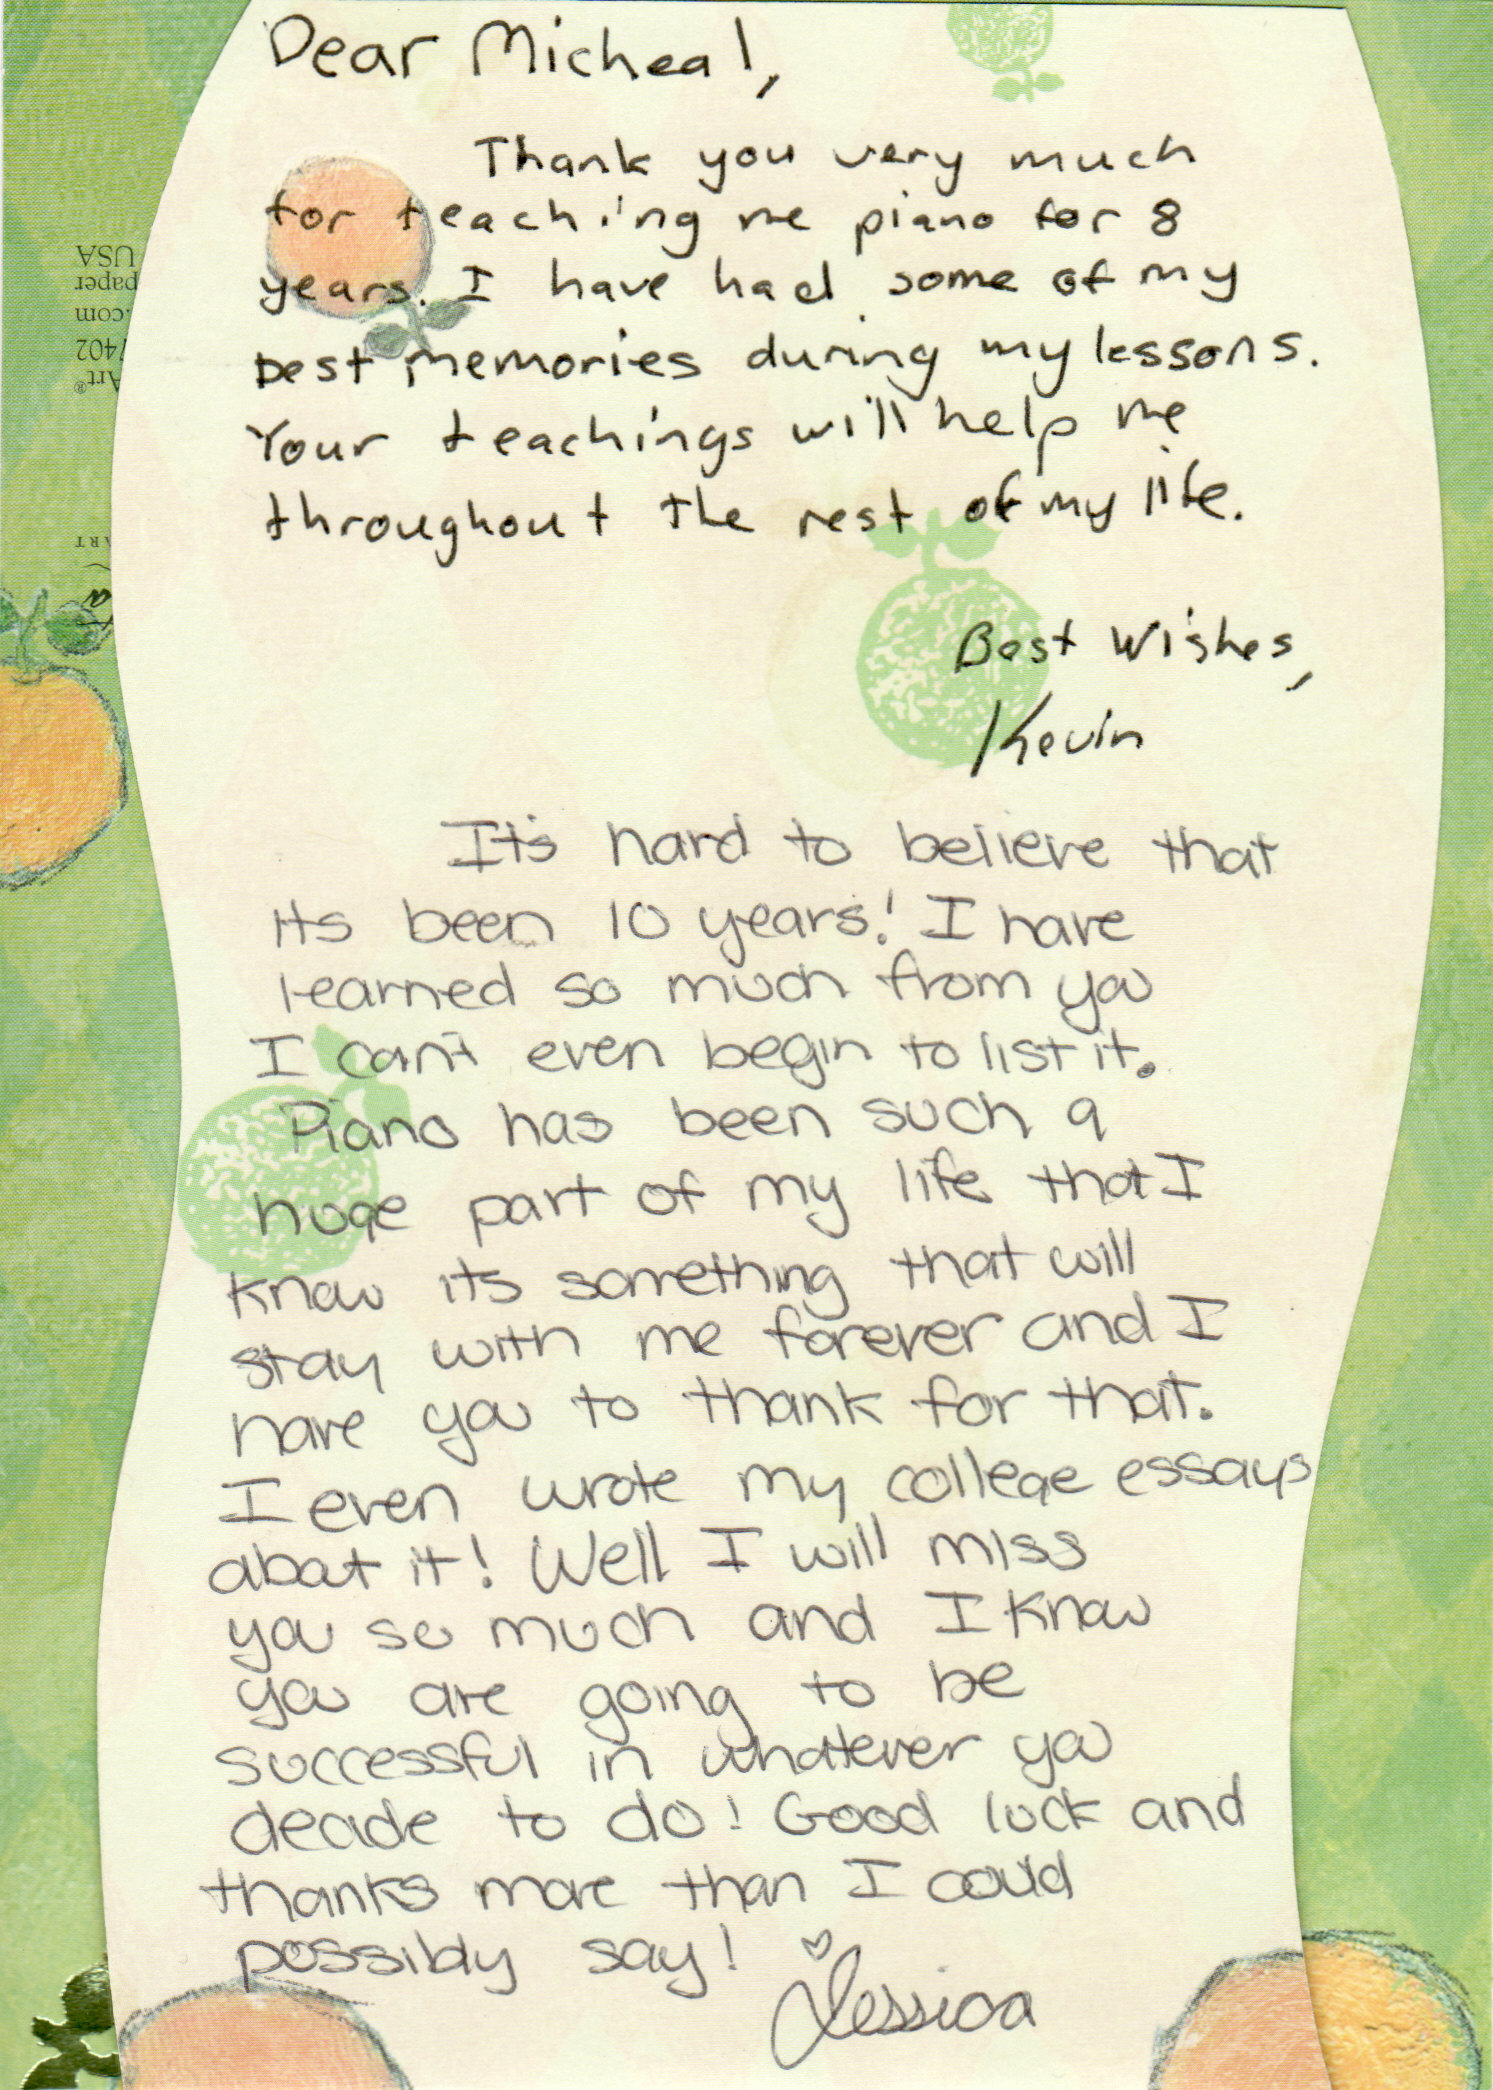 Dear Micheal,
Thank you very much
for teaching me piano for 8
years. I have had some of my
best memories during my lessons.
Your teachings will help me
throughout the rest of my life.
Best Wishes,
Kevin
It's hard to believe that
its been 10 years! I have
learned so much from you
I can't even begin to list it.
Piano has been such a
huge part of my life that I
know its something that will
stay with me forever and I
have you to thank for that.
I even wrote my college essays
about it! Well I will miss
you so much and I know
you are going to be
successful in whatever you
decide to do! Good luck and
thanks more than I could
possibly say!
Jessica
USA
paper
.com
7402
Art®
ART